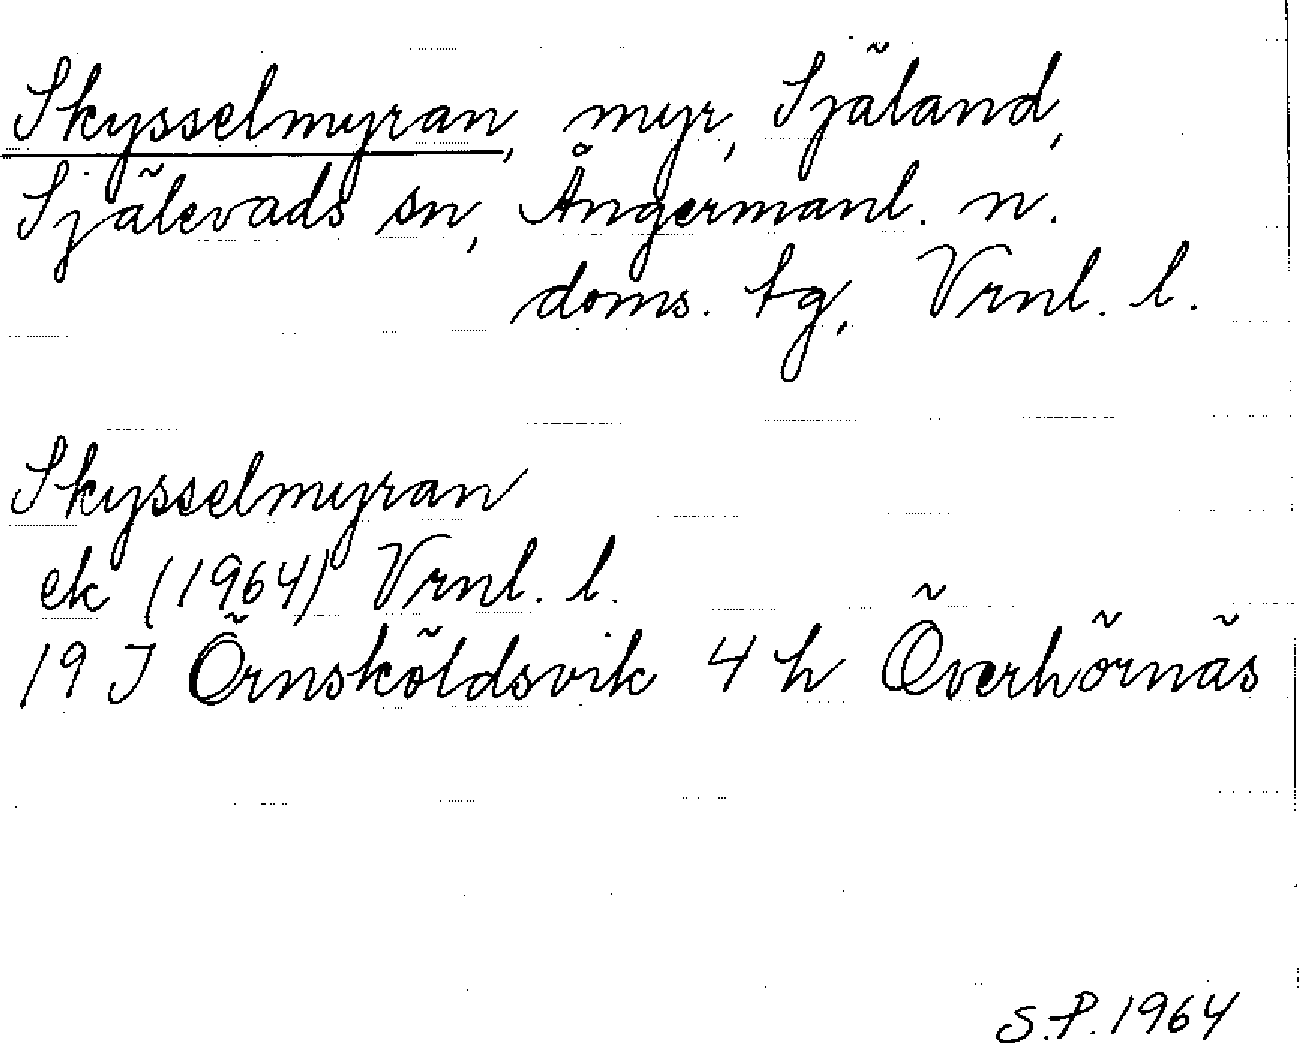 Skysselmyran, myr, Själand,
Själevads sn, Ångermanl. n.
doms. tg, Vrnl. l.
Skysselmyran
ek (1964) Vrnl. l.
19 J Örnsköldsvik 4 h Överhörnäs
S.P. 1964